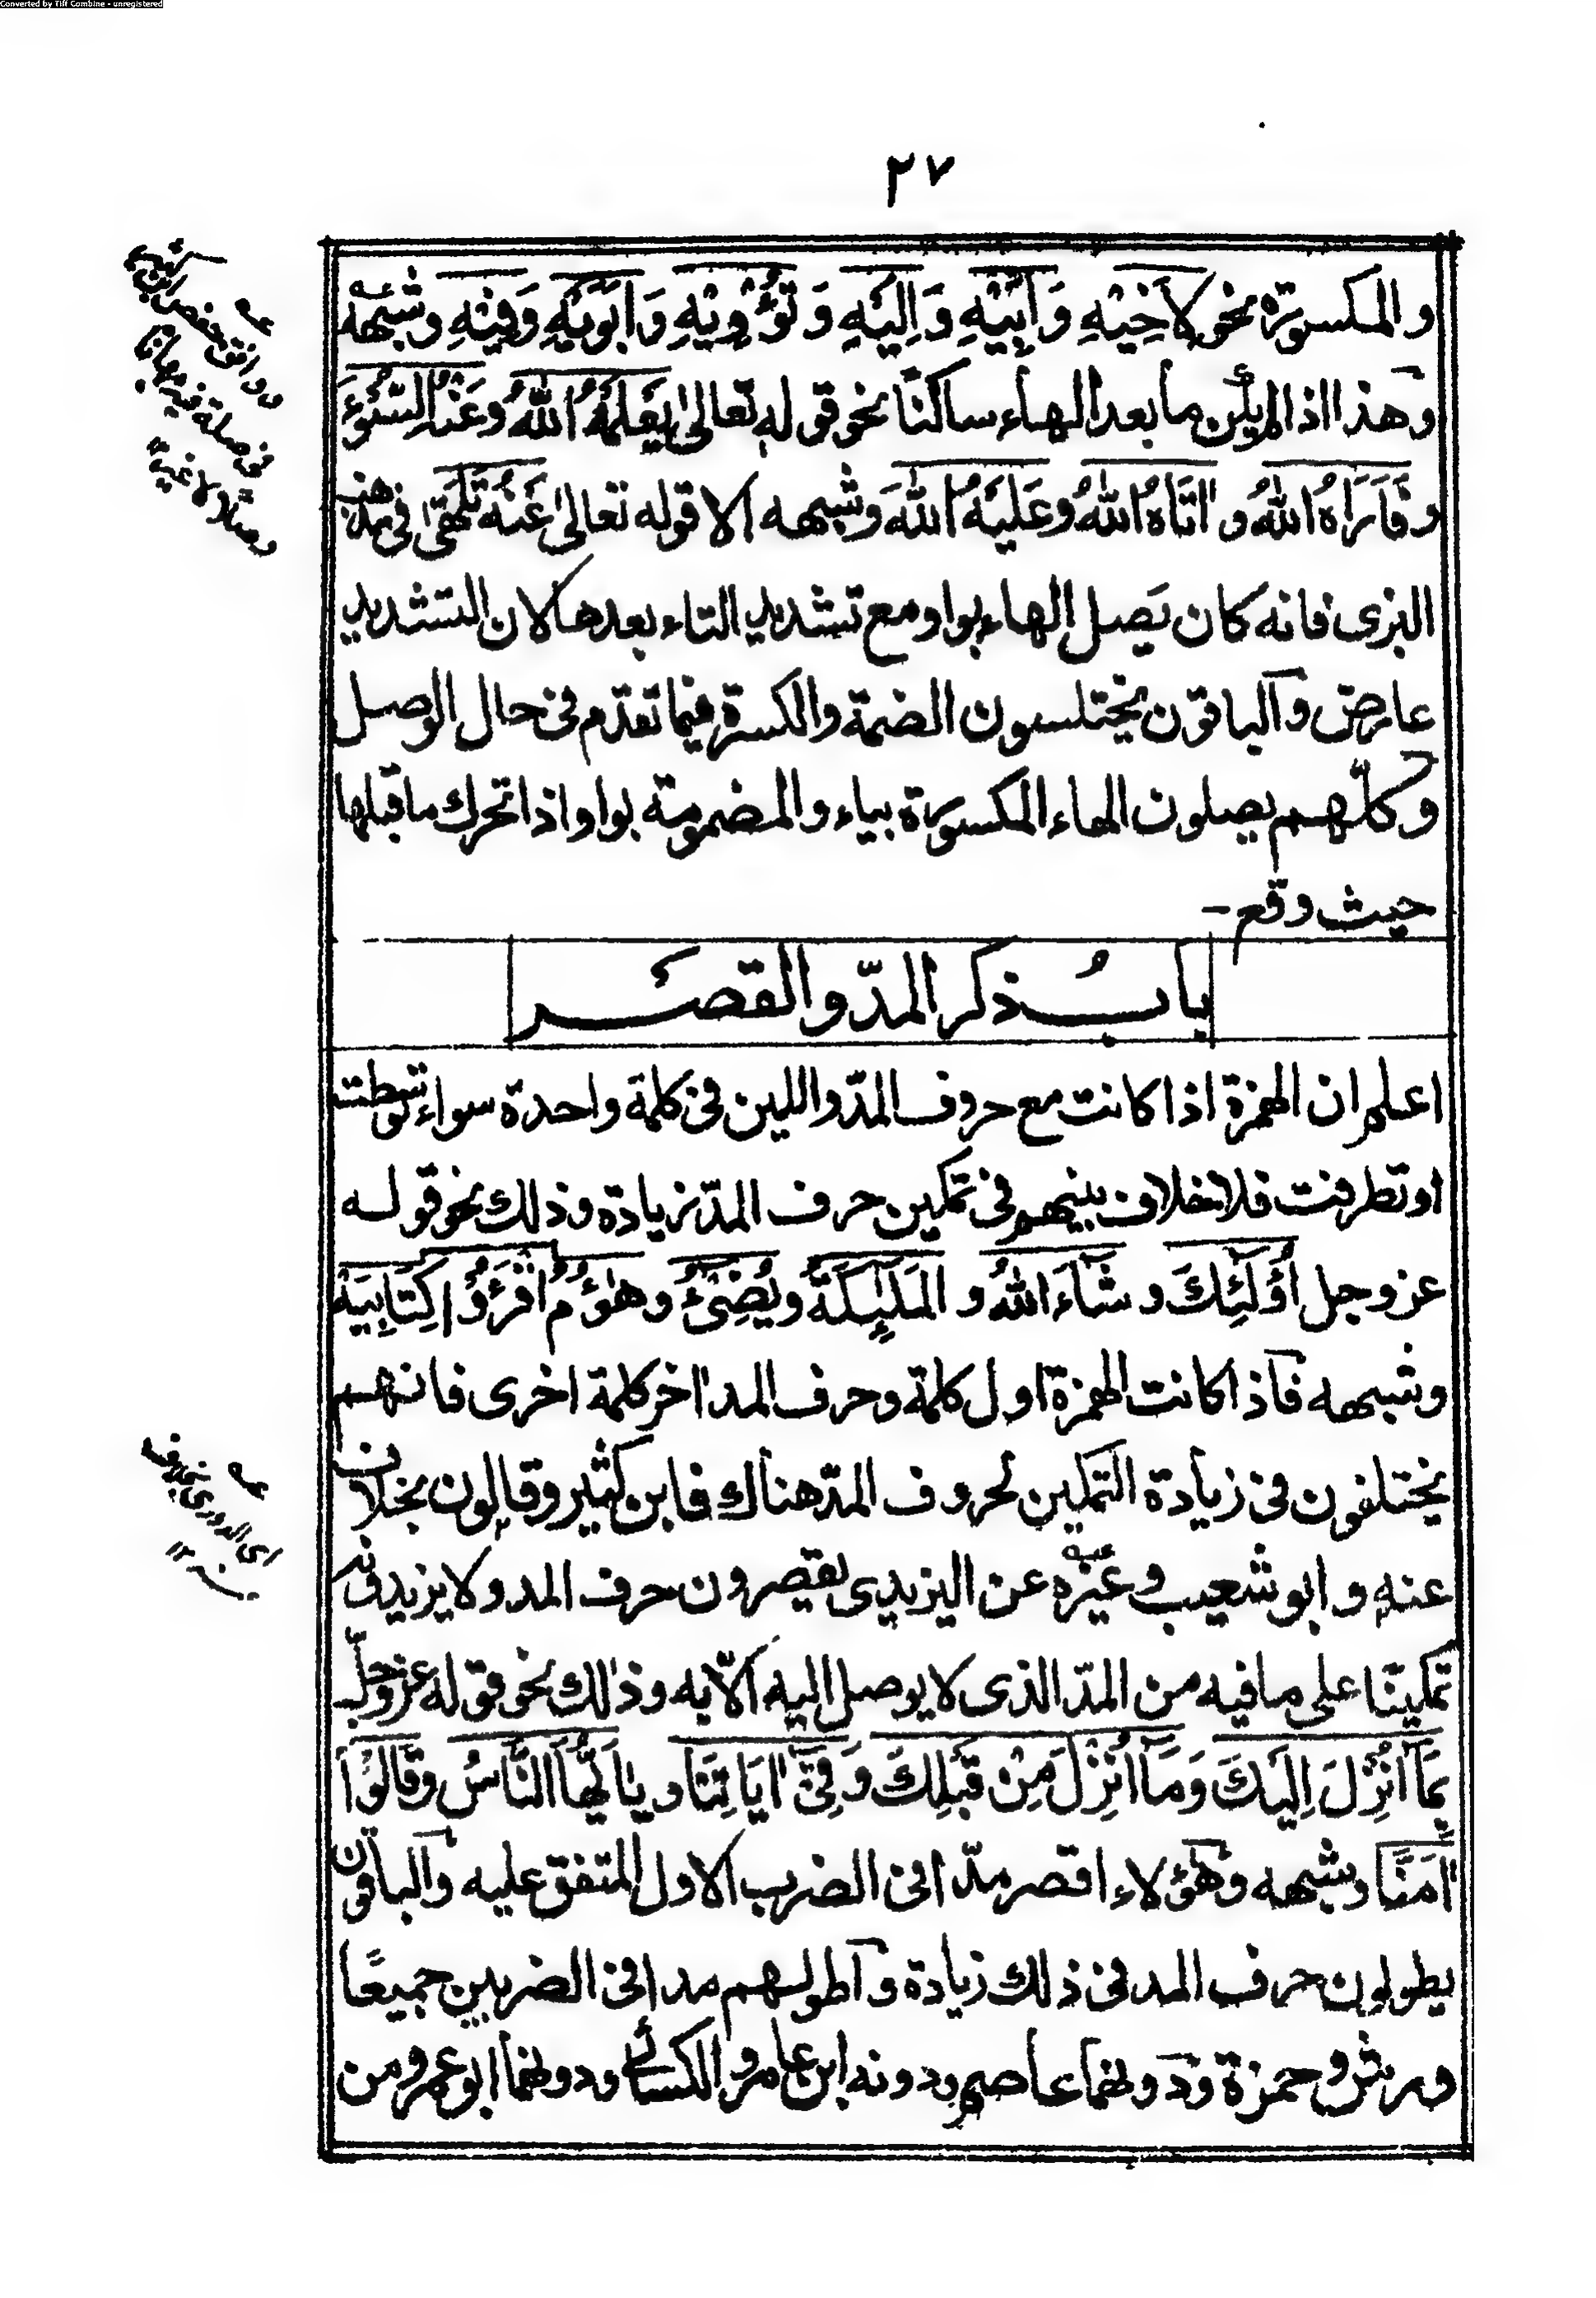 Converted by Tiff Combine - unregistered
٢٧
والمكسورة نحو لاَخِيْهِ وَاَبِيْهِ وَاِلَيْهِ وَتُؤْوِيْهِ وَاَبَوَيْهِ وَفِيْهِ وشبهه
وهذا اذا لم يلق ما بعد الهاء ساكنًا نحو قوله تعالىٰ يَعْلَمْهُ اللّٰهُ وعَنْهُ السُّوْءَ
وفَاَرَاهُ اللّٰهُ و اٰتَاهُ اللّٰهُ وعَلَيْهُ اللّٰهَ وشبهه الا قوله تعالىٰ عَنْهُ تَلَهّٰى فى مذهب
البزى فانه كان يَصِل الهاء بواو مع تشديد التاء بعدها لان التشديد
عارض والباقون يختلسون الضمة والكسرة فيما تقدّم فى حال الوصل
وكلّهم يصلون الهاء المكسورة بياء والمضمومة بواو اذا تحرك ما قبلها
حيث وقع -
بابُ ذكر المدّ والقصر
اعلم ان الهمزة اذا كانت مع حروف المدّ واللين فى كلمة واحدة سواء توسطت
او تطرفت فلا خلاف بينهم فى تمكين حرف المدّ زيادة وذلك نحو قوله
عز وجل اُولٰٓئِكَ و شَآءَ اللّٰهُ و المَلٰٓئِكَةُ ويُضِىْٓءُ وهَآؤُمُ اقْرَؤُا كِتَابِيَهْ
وشبهه فاذا كانت الهمزة اول كلمة وحرف المد اٰخر كلمة اخرى فانهم
يختلفون فى زيادة التمكين لحروف المدّ هناك فابن كثير وقالون بخلاف
عنه وابو شعيب وغيره عن اليزيدى يقصرون حرف المد ولا يزيدونه
تمكينًا على ما فيه من المدّ الذى لا يوصل اليه الّا به وذٰلك نحو قوله عز وجلّ
بِمَآ اُنْزِلَ اِلَيْكَ وَمَآ اُنْزِلَ مِنْ قَبْلِكَ وَفِىْٓ اٰيَاتِنَا و يٰٓاَيُّهَا النَّاسُ وقَالُوْٓا
اٰمَنَّا وشبهه وهٰؤلاء اقصر مدّا فى الضرب الاول المتفق عليه والباقون
يطولون حرف المد فى ذلك زيادة واطولهم مدا فى الضربين جميعًا
ورش وحمزة ودونهما عاصم ودونه ابن عامر والكسائى ودونهما ابو عمرو من
عه
عه
اى الدورى